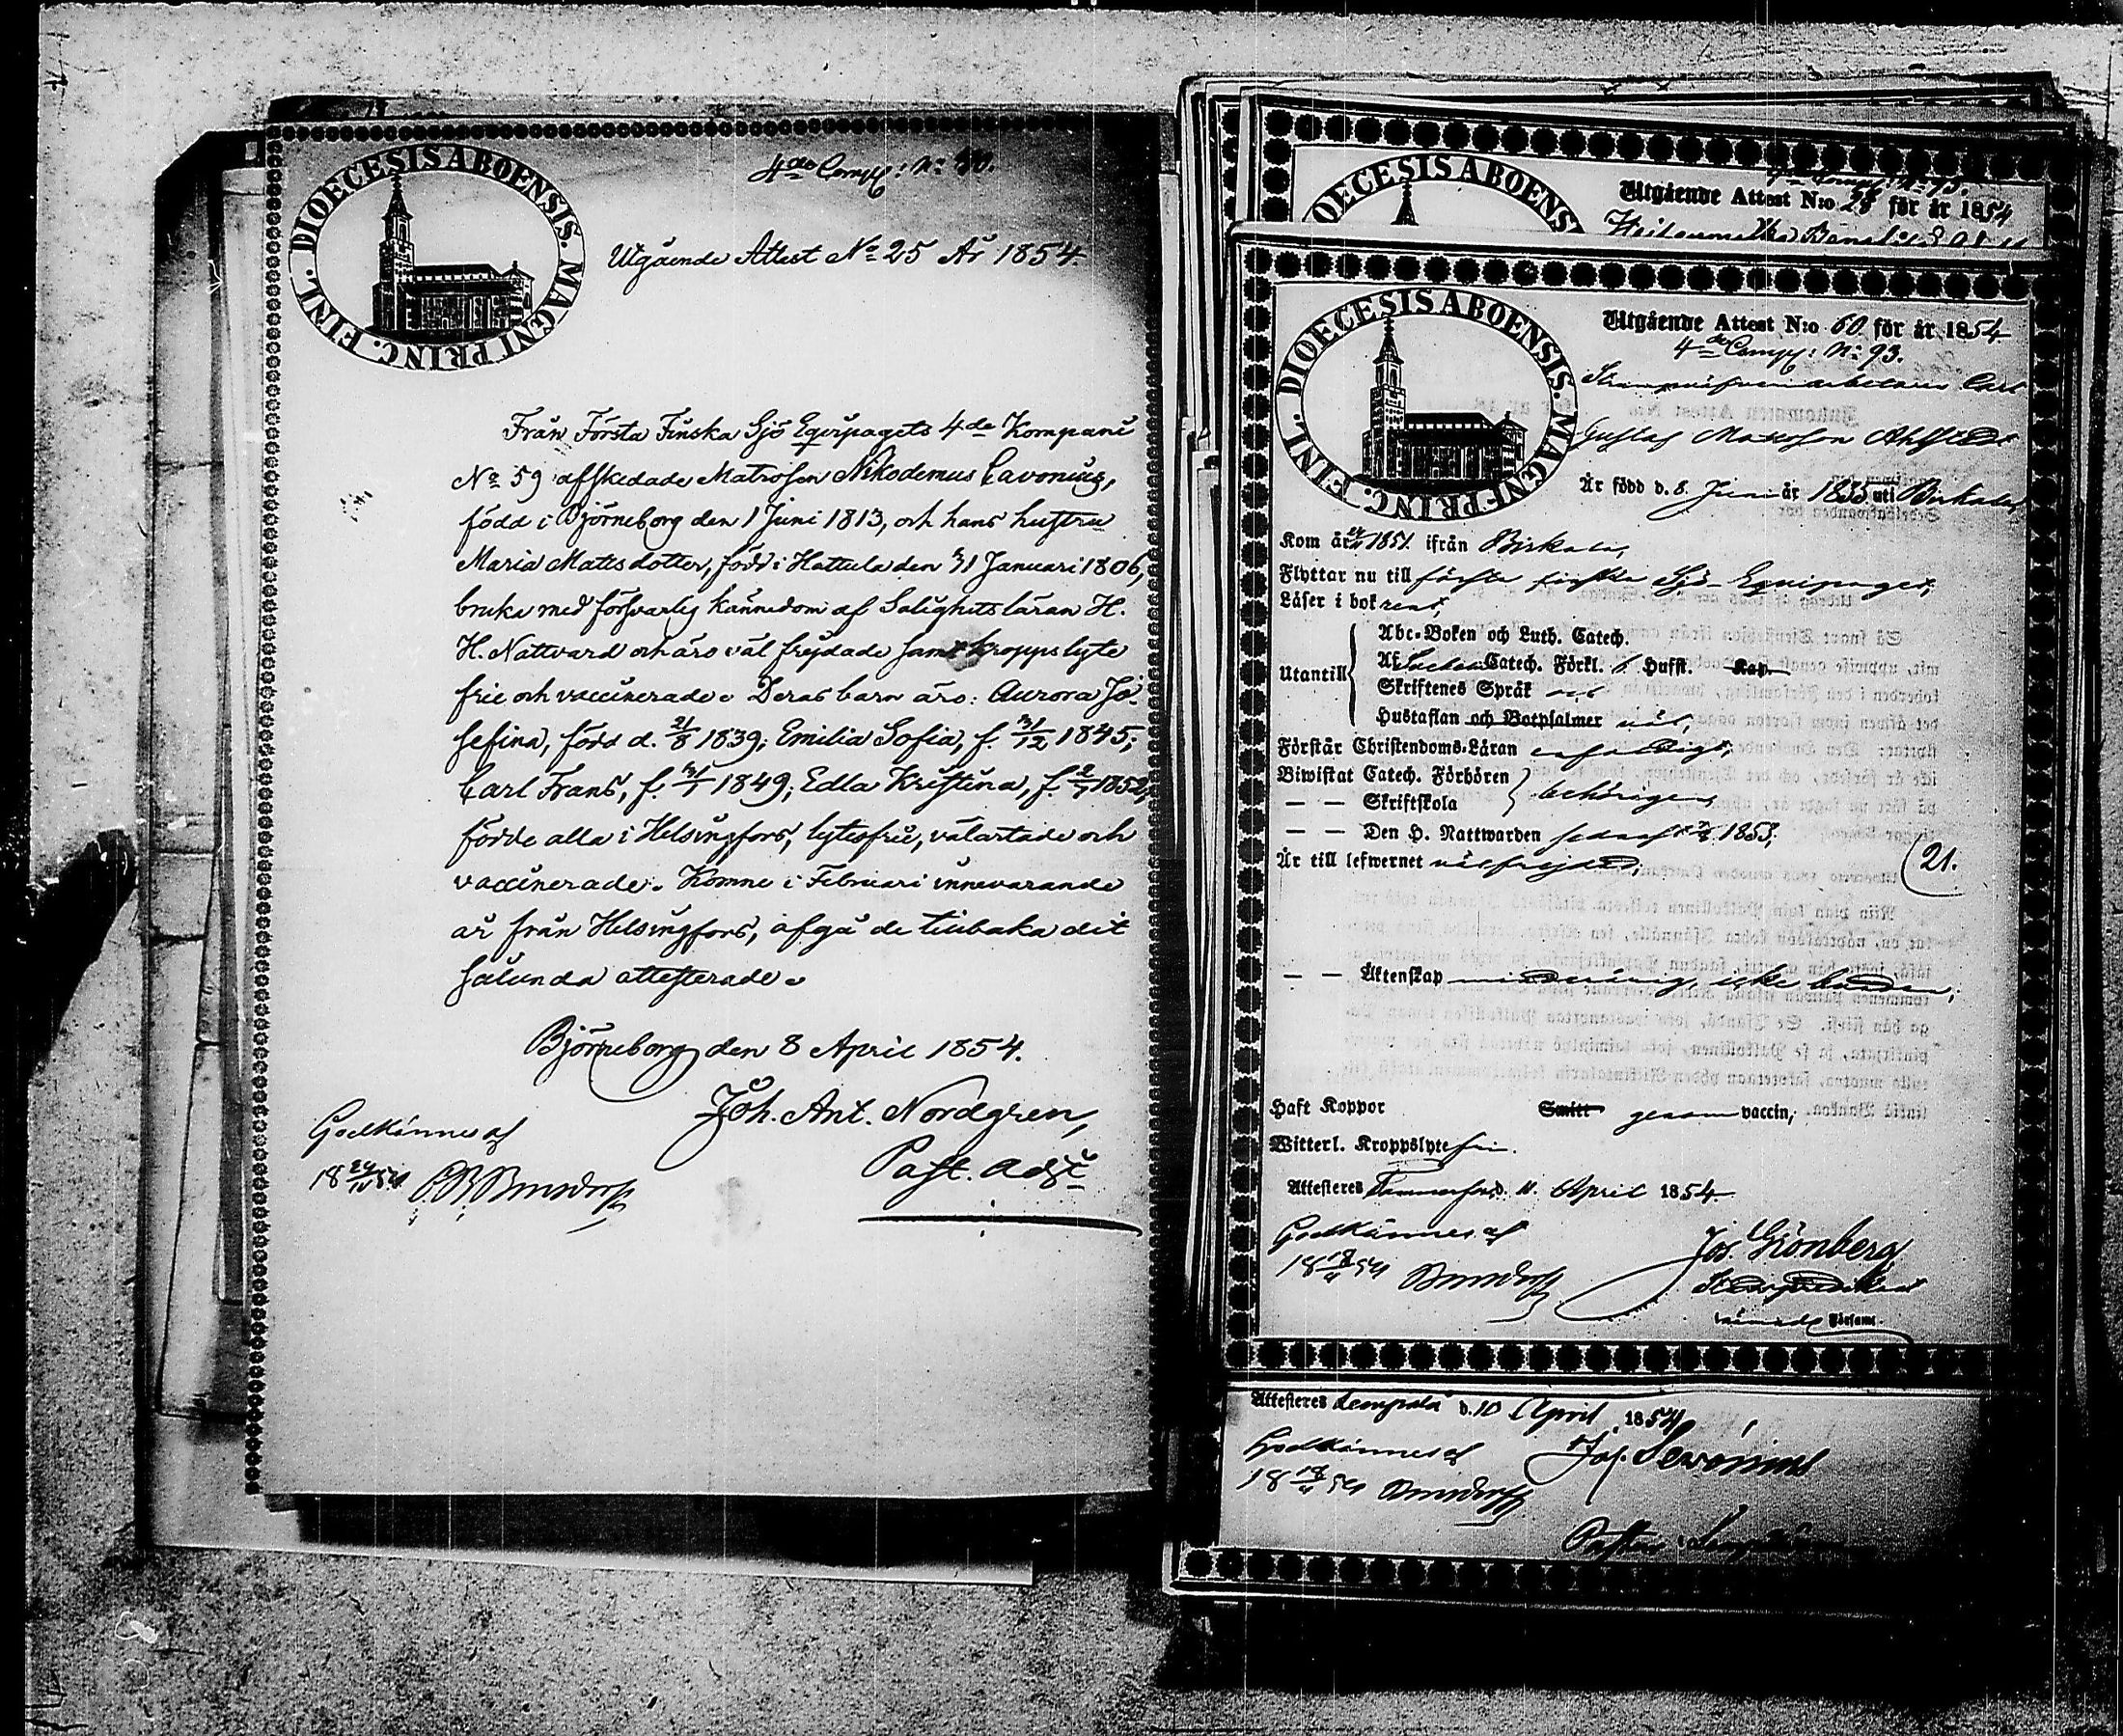 DIOECESIS ABOENSIS. MAGNI PRINC. FINL.
4de Comp: No 50.
Utgående Attest No 25 År 1854.
Från Första Finska Sjö Eqvipagets 4de Kompani
No 59 afskedade Matrosen Nikodemus Cavonius,
född i Björneborg den 1 Juni 1813, och hans hustru
Maria Mattsdotter, född i Hattula den 31 Januari 1806,
bruka med försvarlig kännedom af Salighetsläran H.
H. Nattvard och äro väl frejdade samt kroppslyte
frie och vaccinerade. Deras barn äro: Aurora Jo-
sefina, född d. 21/8 1839; Emilia Sofia, f. 31/12 1845;
Carl Frans, f. 31/1 1849; Edla Kristina, f. 2/7 1852,
födde alla i Helsingfors, lytesfrie, välartade och
vaccinerade. Komne i Februari innevarande
år från Helsingfors, afgå de tillbaka dit
sålunda attesterade.
Björneborg den 8 April 1854.
Joh. Ant. Nordgren,
Past. Adj:t
Godkännes af
18 54
OECESIS ABOENS
Utgående Attest N:o 28 för år 1854
DIOECESIS ABOENSIS. MAGNI PRINC. FINL.
Utgående Attest N:o 60 för år 1854
4de Comp: No 93.
Carl
Gustaf Matsson Ahlstedt
Är född d. 8 Juni år 1835 uti Birkala,
Kom år 1851 ifrån Birkala,
Flyttar nu till första finska Sjö-Equipaget,
Läser i bok rent,
Utantill
Abc-Boken och Luth. Catech.
Af Catech. Förkl. 6 Hufst. Kap.
Skriftenes Språk
Hustaflan och Botpsalmer väl,
Förstår Christendoms-Läran enfaldigt,
Biwistat Catech. Förhören
— — Skriftskola
behörigen
— — Den H. Nattwarden sednast 1853,
Är till lefwernet välfrejdad,
(21.
— — Äktenskap minderårig, icke bunden,
Haft Koppor Smitt genom vaccin,
Witterl. Kroppslyte fri.
Attesteres Tammerfors d. 11 April 1854
Godkännes af
18 54
Jos. Grönberg
Församl.
Attesteres Lempälä d. 10 April 1854
Godkännes af
18 54
Pastor i